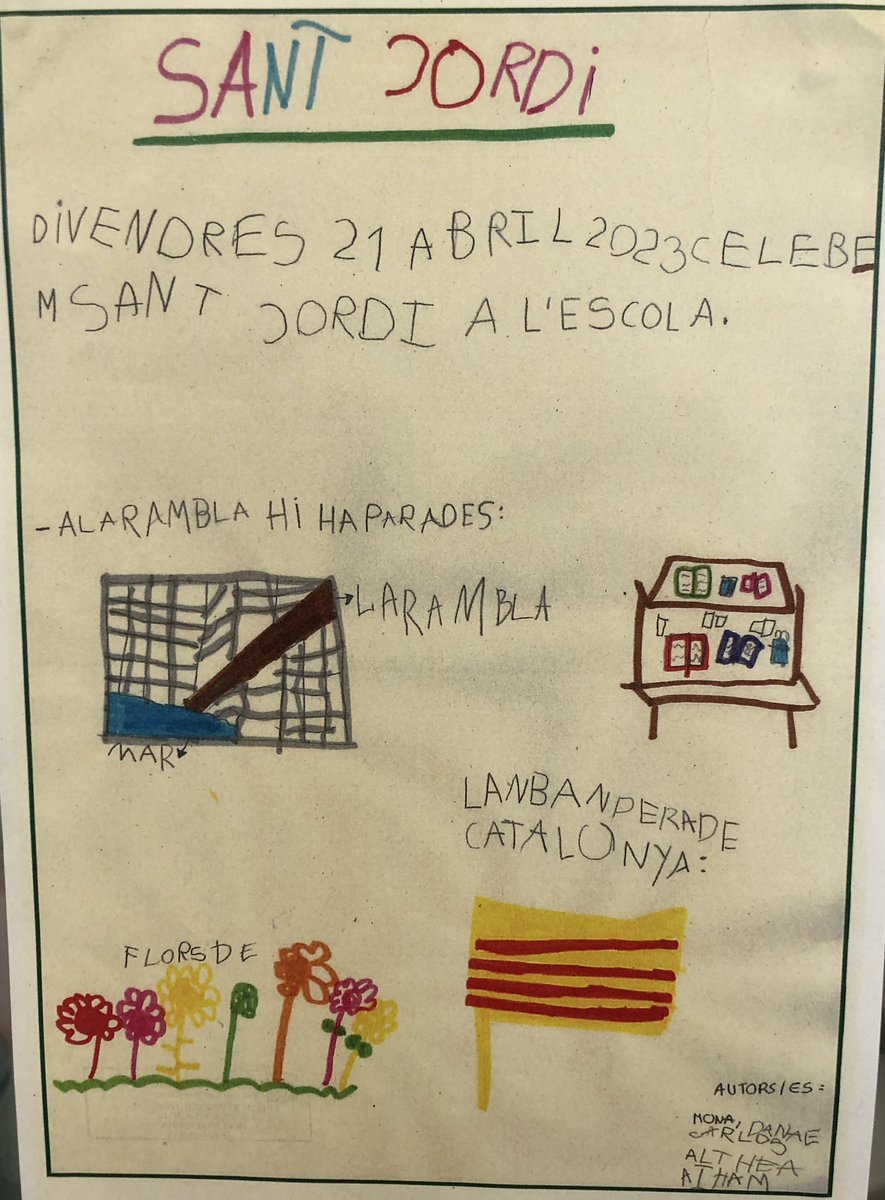 SANT JORDi
DiVENDRES 21 ABRIL 2023 CELEBE
M SANT JORDI A L'ESCOLA.
-ALARAMBLA Hi HAPARADES:
LARAMBLA
MAR
LANBANPERADE
CATALUNYA:
FLORSDE
AUTORS/ES:
MONA, DANAE
CARLOS
ALTHEA
AIHAM